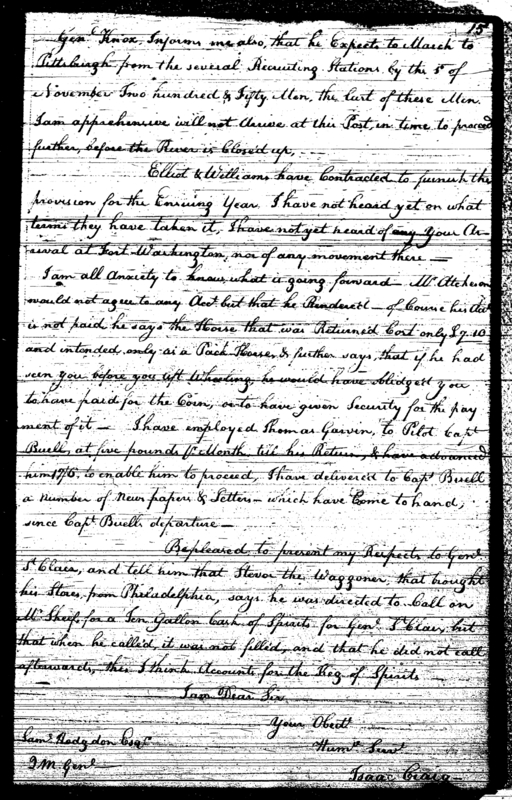 15
Genl. Knox Informs me also, that he Expects to March to
Pittsburgh from the several Recruiting Stations by the 5th of
November Two hundred & Fifty Men, the last of these Men
I am apprehensive will not Arrive at this Post, in time to proceed
further, before the River is Closed up,
Elliot & Williams have Contracted to furnish the
provision for the Ensuing Year. I have not heard yet on what
terms they have taken it, I have not yet heard of any Your Ar-
rival at Fort Washington, nor of any movement there —
I am all Anxiety to know what is going forward — Mr. Atcheson
would not agree to any Acct. but that he Rendered — of Course his Acct.
is not paid, he says the Horse that was Returned Cost only £7.10
and intended only as a Pack Horse, & further says, that if he had
seen you before you left Wheeling, he would have Obliged you
to have paid for the Corn, or to have given Security for the pay
ment of it — I have employed Thomas Garvin, to Pilot Capt.
Buell, at five pounds pr. Month, till his Return, & have advanced
him 17/6. to enable him to proceed, I have deliver'd to Capt. Buell
a number of News papers & Letters — which have Come to hand,
since Capt. Buells departure —
Be pleased, to present my Respects to Genl.
St. Clair, and tell him that the Waggoner, that brought
his Stores from Philadelphia, says he was directed to Call on
Mr. for a Ten Gallon Cask of Spirits for Genl. St. Clair, but
that when he called, it was not filled, and that he did not call
afterwards, this I think Accounts for the Keg of Spirits
I am Dear Sir
Your Obedt.
Huml. Servt.
Isaac Craig —
Saml. Hodgdon Esqr.
Q. M. Genl.